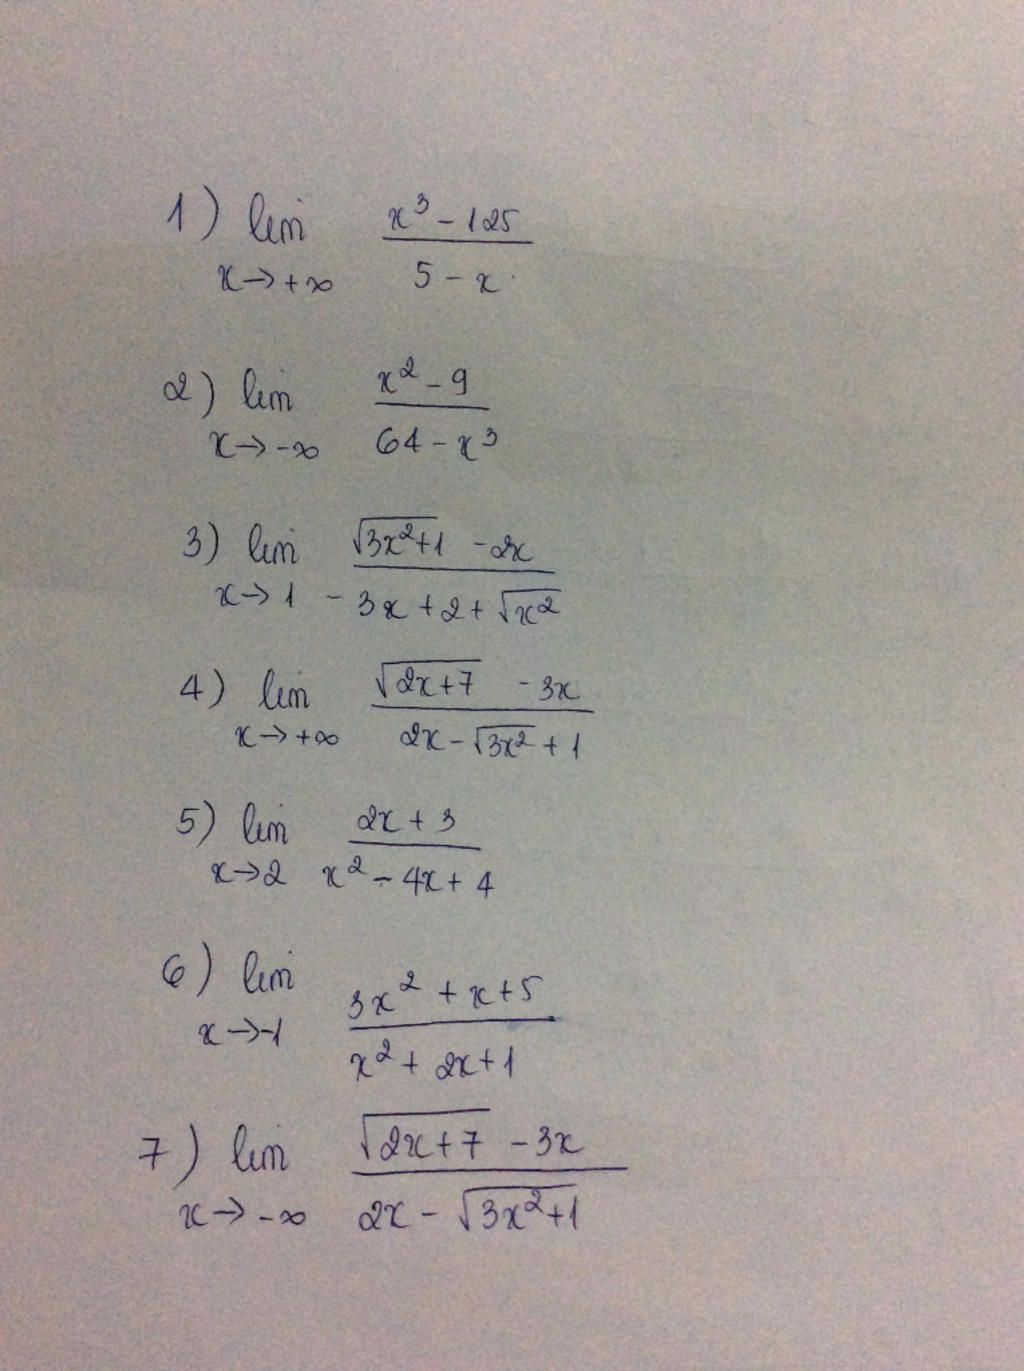 1) lim x³ - 125
x→+∞ 5 - x
2) lim x² - 9
x→-∞ 64 - x³
3) lim √3x²+1 - 2x
x→1 - 3x + 2 + √x²
4) lim √2x+7 - 3x
x→+∞ 2x - √3x² + 1
5) lim 2x + 3
x→2 x² - 4x + 4
6) lim 3x² + x + 5
x→-1 x² + 2x + 1
7) lim √2x+7 - 3x
x→-∞ 2x - √3x²+1